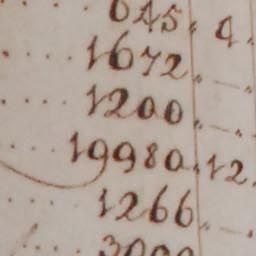 645. 4.
1672. —.
1200. —.
19980. 12.
1266. —.